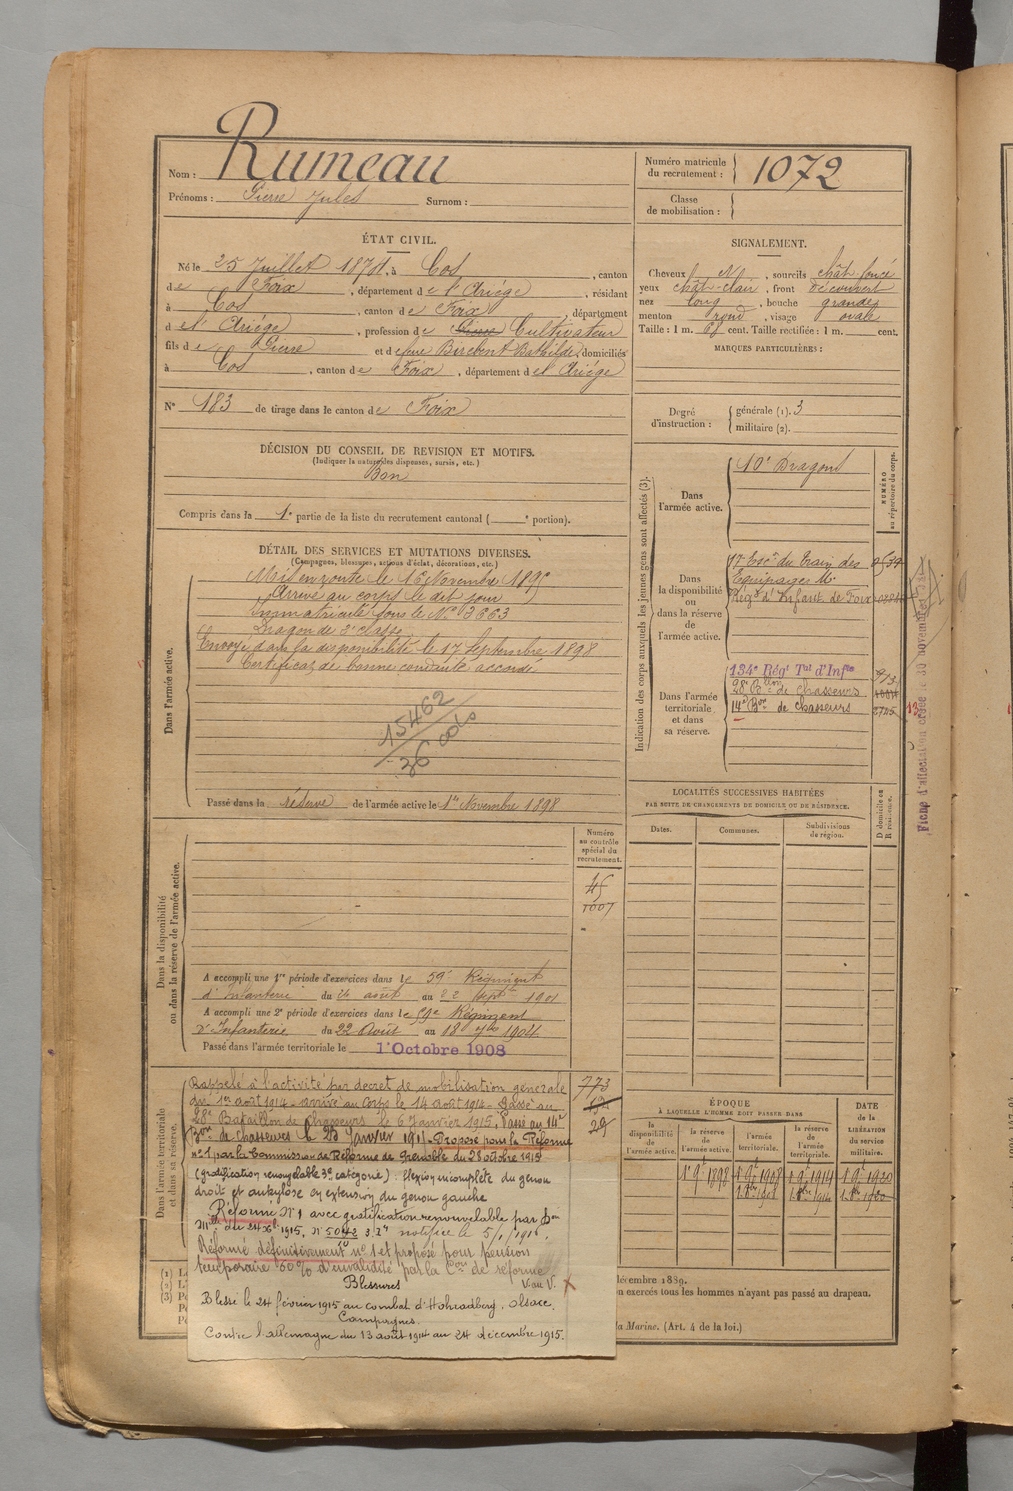 Nom : Rumeau
Prénoms : Pierre Jules Surnom :
Numéro matricule du recrutement : 1072
Classe de mobilisation :
ÉTAT CIVIL.
Né le 25 Juillet 1874, à Cos, canton
de Foix, département de l'Ariège, résidant
à Cos, canton de Foix, département
de l'Ariège, profession de Cultivateur
fils de Pierre et de feue Birebent Bathilde, domiciliés
à Cos, canton de Foix, département de l'Ariège
N° 183 de tirage dans le canton de Foix
DÉCISION DU CONSEIL DE REVISION ET MOTIFS.
(Indiquer la nature des dispenses, sursis, etc.)
Bon
Compris dans la 1e partie de la liste du recrutement cantonal ( e portion).
DÉTAIL DES SERVICES ET MUTATIONS DIVERSES.
(Campagnes, blessures, actions d'éclat, décorations, etc.)
Dans l'armée active.
Mis en route le 16 Novembre 1895
Arrivé au corps le dit jour
Immatriculé sous le N° 3663
Dragon de 2e classe
Envoyé dans la disponibilité le 17 Septembre 1898
Certificat de bonne conduite accordé
15462
36
Passé dans la réserve de l'armée active le 1er Novembre 1898
Dans la disponibilité ou dans la réserve de l'armée active.
Numéro au contrôle spécial du recrutement.
45
1007
A accompli une 1re période d'exercices dans le 59e Régiment
d'Infanterie du 26 août au 22 Septe 1901
A accompli une 2e période d'exercices dans le 59e Régiment
d'Infanterie du 22 Août au 18 7bre 1904
Passé dans l'armée territoriale le 1er Octobre 1908
Dans l'armée territoriale et dans sa réserve.
Rappelé à l'activité par décret de mobilisation générale
du 1er août 1914 - arrivé au Corps le 14 août 1914 - Passé au
28e Bataillon de Chasseurs le 6 Janvier 1915, Passé au 14e
Bon de chasseurs le 20 Janvier 1915 - Proposé pour la Réforme
n° 1 par la Commission de Réforme de Grenoble du 28 octobre 1915
(gratification renouvelable 3e catégorie) : flexion incomplète du genou
droit et ankylose en extension du genou gauche
Réformé N° 1 avec gratification renouvelable par Don
Mlle du 24 Xbre 1915, n° 5042 notifiée le 5/1/1916.
Réformé définitivement n° 1 et proposé pour pension
temporaire 60% d'invalidité par la Con de réforme
V. au V.
Blessures
Blessé le 24 février 1915 au combat d'Hohrodberg, Alsace.
Campagnes.
Contre l'allemagne du 13 août 1914 au 24 décembre 1915.
773
25
SIGNALEMENT.
Cheveux N, sourcils chât. foncé
yeux chât-clair, front découvert
nez long, bouche grande
menton rond, visage ovale
Taille : 1 m. 68 cent. Taille rectifiée : 1 m. cent.
MARQUES PARTICULIÈRES :
Degré d'instruction : générale (1). 3
militaire (2).
Indication des corps auxquels les jeunes gens sont affectés (3).
NUMÉRO au répertoire du corps.
Dans l'armée active.
10e Dragons
Dans la disponibilité ou dans la réserve de l'armée active.
17e Escn du Train des
Équipages Mres
Régt d'Infant. de Foix
Dans l'armée territoriale et dans sa réserve.
134e Régt Tal d'Infie
28e Bon de chasseurs
14e Bon de chasseurs
LOCALITÉS SUCCESSIVES HABITÉES
PAR SUITE DE CHANGEMENTS DE DOMICILE OU DE RÉSIDENCE.
Dates. Communes. Subdivisions de région. D domicile ou R résidence.
ÉPOQUE
À LAQUELLE L'HOMME DOIT PASSER DANS
la disponibilité de l'armée active. la réserve de l'armée active. l'armée territoriale. la réserve de l'armée territoriale.
DATE de la LIBÉRATION du service militaire.
1er 9e 1898 1er 9e 1908 1er 9e 1914 1er 9e 1920
décembre 1889.
n exercés tous les hommes n'ayant pas passé au drapeau.
la Marine. (Art. 4 de la loi.)
Fiche d'affectation créée le 30 novembre